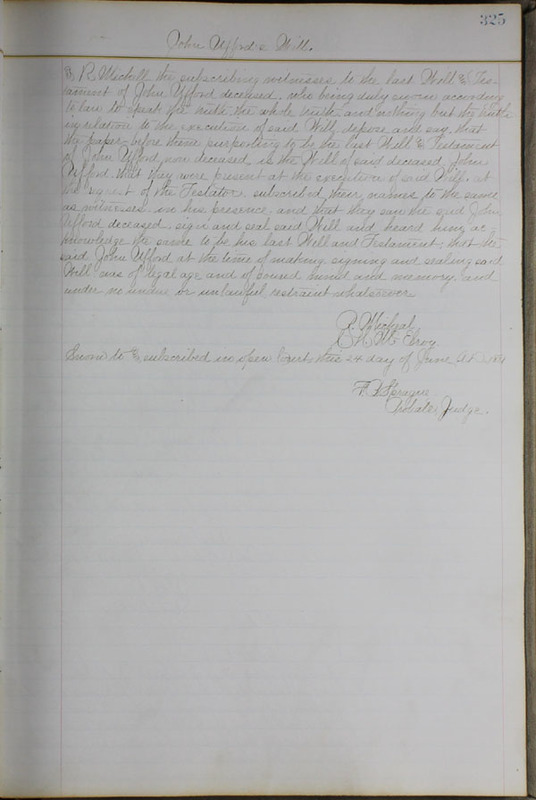 325
John Ufford's Will.
R. Michall the subscribing witnesses to the last Will & Tes-
tament of John Ufford deceased, who being duly sworn according
to law to speak the truth the whole truth and nothing but the truth
in relation to the execution of said Will, depose and say, that
the paper before them purporting to be the last Will & Testament
of John Ufford now deceased, is the Will of said deceased John
Ufford, that they were present at the execution of said Will, at
the request of the Testator, subscribed their names to the same
as witnesses in his presence, and that they saw the said John
Ufford deceased, sign and seal said Will and heard him ac-
knowledge the same to be his last Will and Testament, that the
said John Ufford at the time of making, signing and sealing said
Will was of legal age and of sound mind and memory and
under no undue or unlawful restraint whatsoever
R.
McElroy
Sworn to & subscribed in open Court, this 24 day of June A.D.
F. Sprague
Probate Judge.